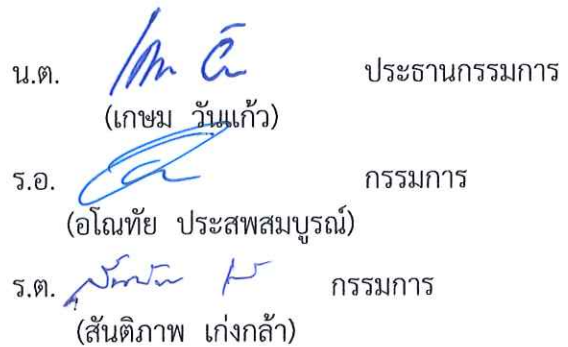 น.ต. ประธานกรรมการ
(เกษม วันแก้ว)
ร.อ. กรรมการ
(อโณทัย ประสพสมบูรณ์)
ร.ต. กรรมการ
(สันติภาพ เก่งกล้า)